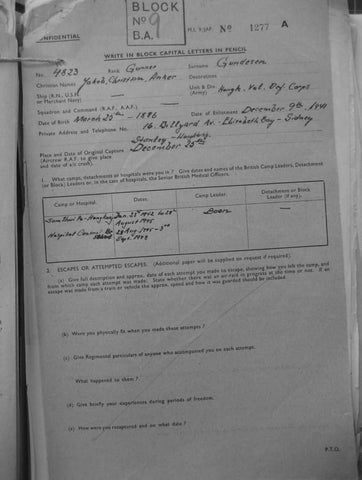 BLOCK
Nº 9
B.A.
M.I. 9/JAP. Nº 1277 A
CONFIDENTIAL
WRITE IN BLOCK CAPITAL LETTERS IN PENCIL
No. 4823 Rank Gunner Surname Gundesen
Christian Names Jakob, Christian Anker Decorations
Ship (R.N., U.S.N. or Merchant Navy) Unit & Div. (Army) Hongk. Vol. Def Corps
Squadron and Command (R.A.F., A.A.F.)
Date of Birth March 25th - 1886 Date of Enlistment December 9th 1941
Private Address and Telephone No. 16. Billyard Av. - Elizabeth Bay - Sidney
Place and Date of Original Capture Stanley - Hongkong
(Aircrew R.A.F. to give place and date of a/c crash) December 25th
1. What camps, detachments or hospitals were you in? Give dates and names of the British Camp Leaders, Detachment
(or Block) Leaders or, in case of hospitals, the Senior British Medical Officers.
Camp or Hospital. Dates. Camp Leader. Detachment or Block Leader (if any).
Jan. 23rd 1942 to 28th
August 1945
Hospital 28 Aug. 1945 - 5th
Sept.
2. ESCAPES OR ATTEMPTED ESCAPES. (Additional paper will be supplied on request if required).
(a) Give full description and approx. date of each attempt you made to escape, showing how you left the camp, and
from which camp each attempt was made. State whether there was an air raid in progress at the time or not. If an
escape was made from a train or vehicle the approx. speed and how it was guarded should be included.
(b) Were you physically fit when you made these attempts?
(c) Give Regimental particulars of anyone who accompanied you on each attempt.
What happened to them?
(d) Give briefly your experiences during periods of freedom.
(e) How were you recaptured and on what date?
P.T.O.